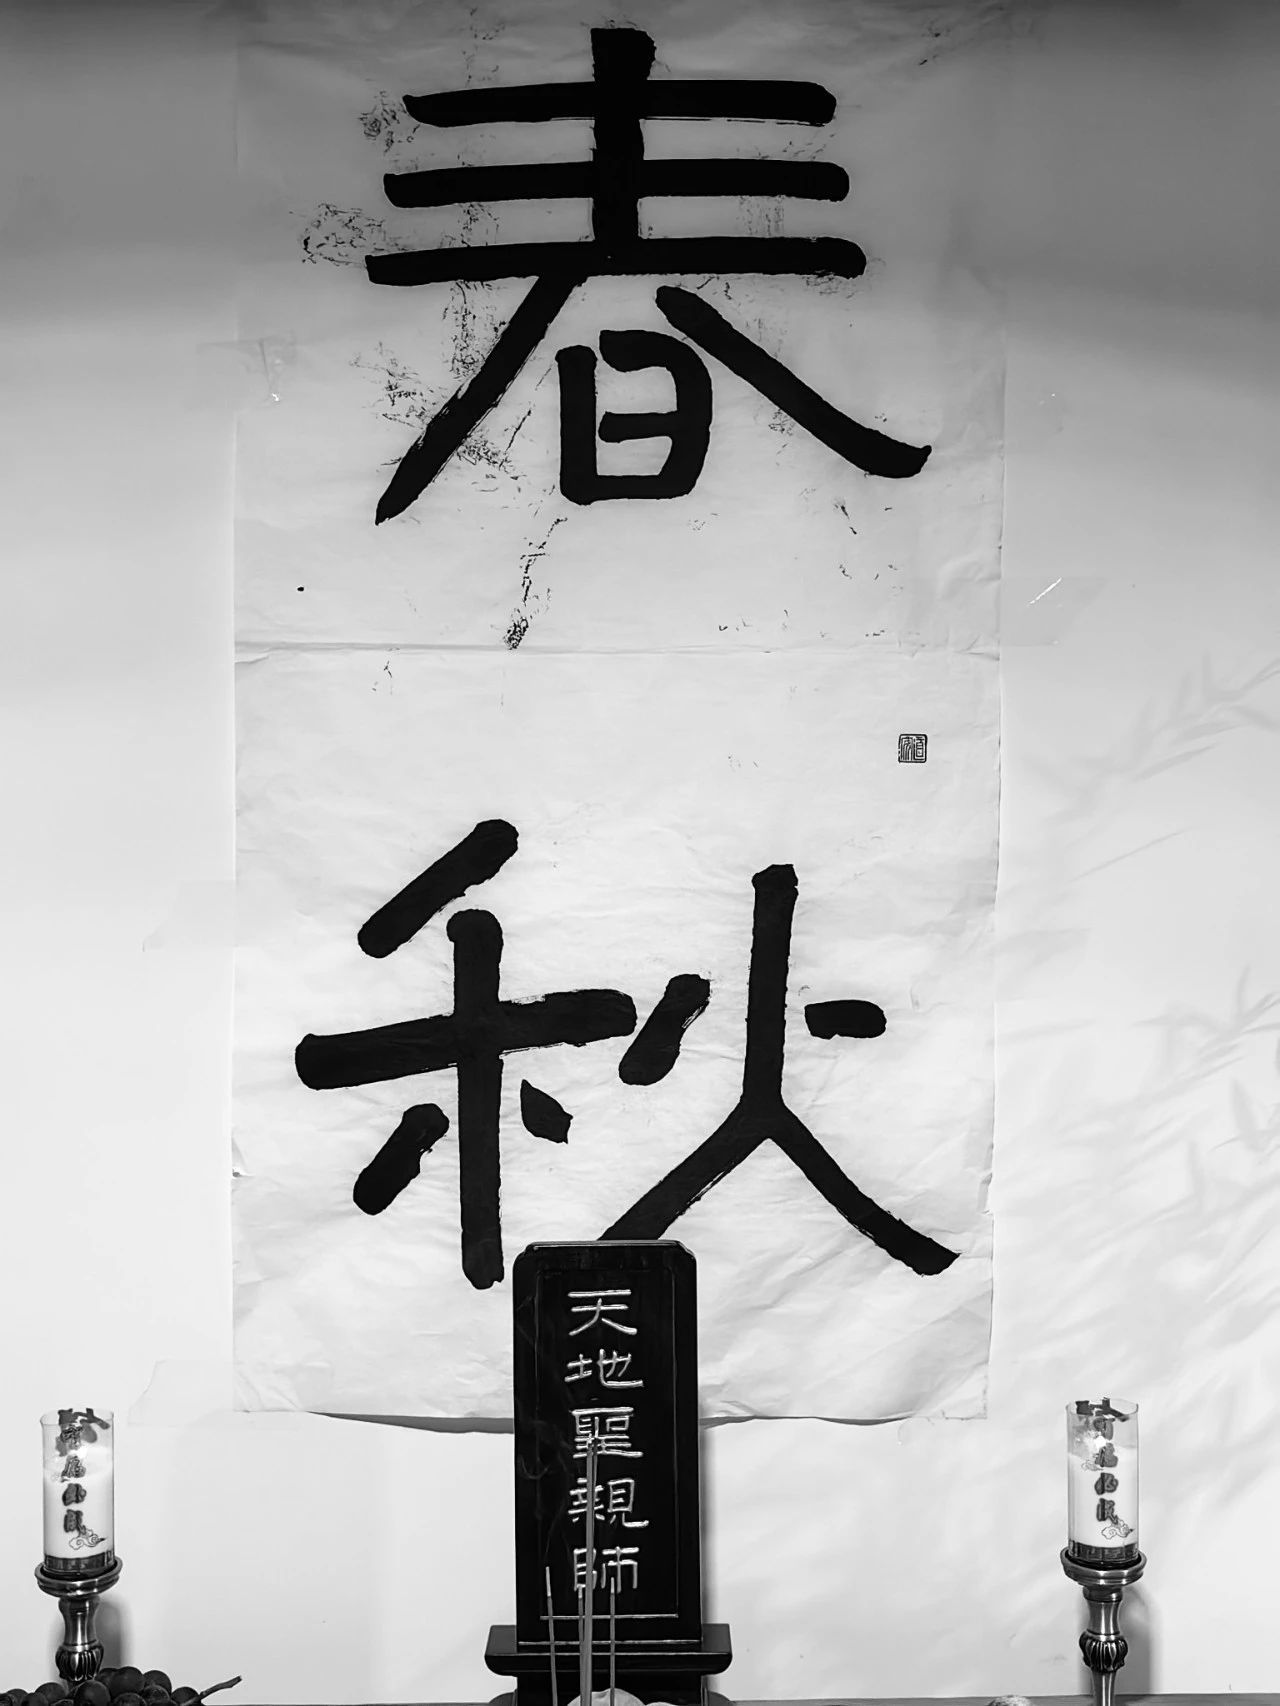 春
秋
天
地
聖
親
師